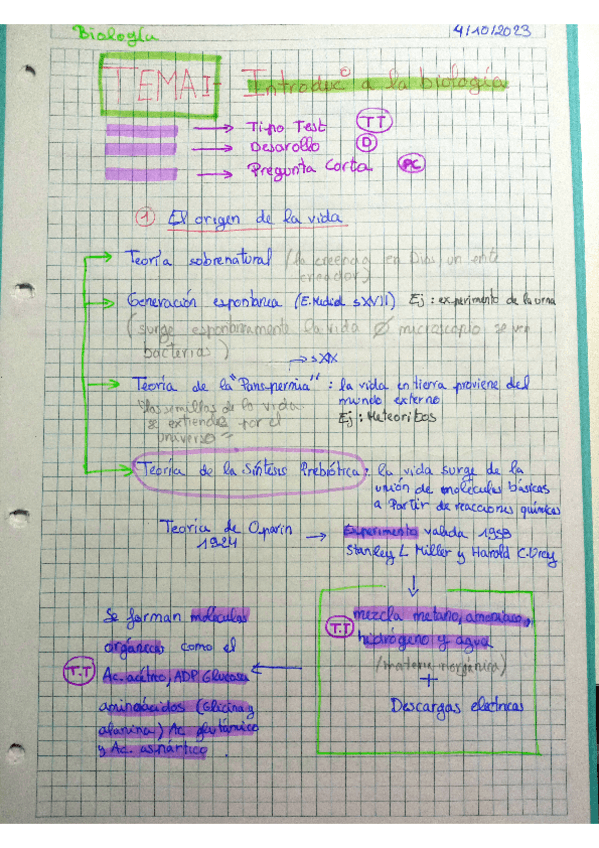 Biología
4/10/2023
TEMA I- Introduc° a la biología
→ Tipo Test TT
→ Desarollo D
→ Pregunta Corta PC
① El origen de la vida
Teoría sobrenatural (la creencia en Dios, un ente
creador)
Generación espontánea (E.Media sXVII) Ej: experimento de la urna
(surge espontáneamente la vida Ø microscopio se ve
bacterias)
→ sXIX
Teoría de la "Panspermia": la vida en tierra proviene del
mundo externo
Ej: Meteoritos
"las semillas de la vida
se extiende por el
universo"
Teoría de la Síntesis Prebiótica: la vida surge de la
unión de moléculas básicas
a Partir de reacciones químicas
Teoria de Oparin
1924
→ Experimento valada 1953
Stanley L Miller y Harold C.Urey
T.T mezcla metano, amoníaco,
hidrógeno y agua
(materia inorgánica)
+
Descargas electricas
Se forman moléculas
orgánicas como el
T.T Ac. acético, ADP Glucosa
aminoácidos (Glicina y
alanina) Ac. glutámico
y Ac. aspártico.